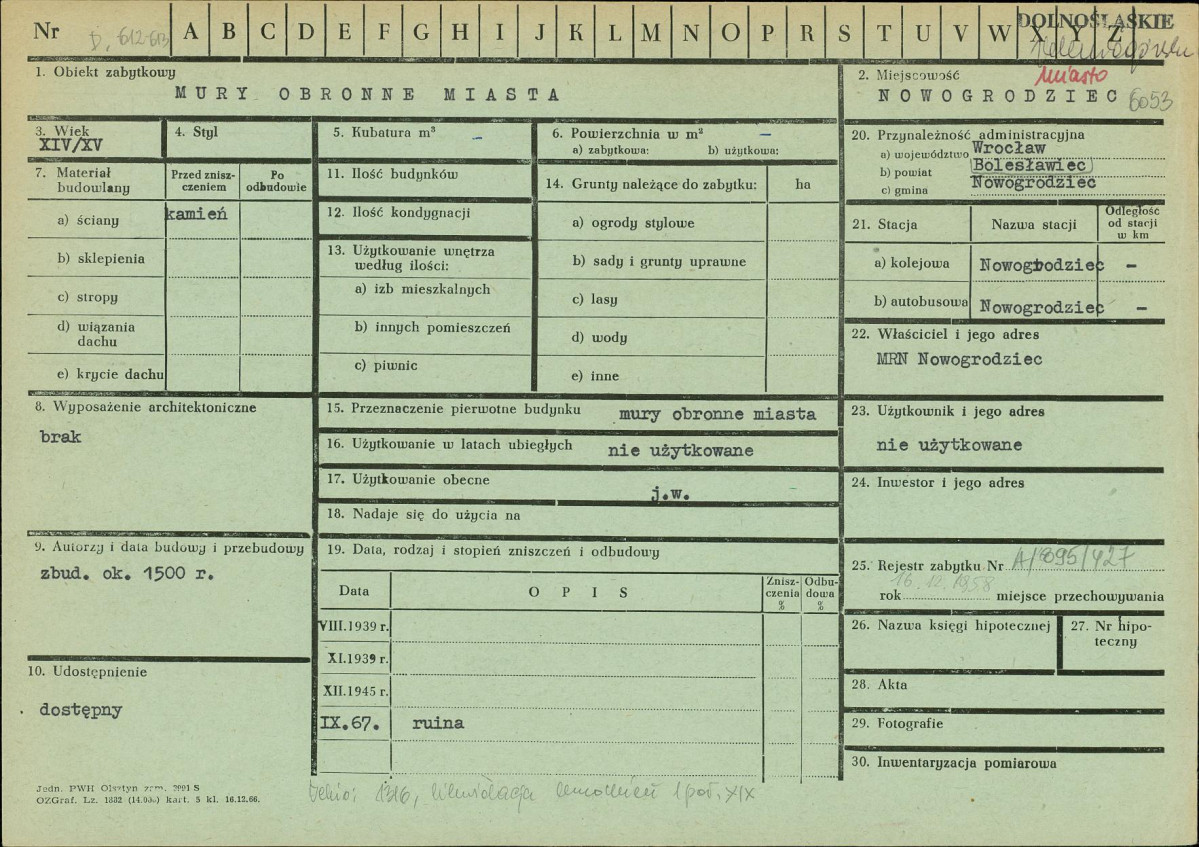 Nr D, 612-613 A B C D E F G H I J K L M N O P R S T U V W X Y Z DOLNOŚLĄSKIE
1. Obiekt zabytkowy
MURY OBRONNE MIASTA
2. Miejscowość miasto
NOWOGRODZIEC 6053
3. Wiek
XIV/XV
4. Styl
5. Kubatura m³ –
6. Powierzchnia w m² –
a) zabytkowa: b) użytkowa:
7. Materiał budowlany
Przed znisz-
czeniem
Po
odbudowie
a) ściany kamień
b) sklepienia
c) stropy
d) wiązania
dachu
e) krycie dachu
11. Ilość budynków
12. Ilość kondygnacji
13. Użytkowanie wnętrza
według ilości:
a) izb mieszkalnych
b) innych pomieszczeń
c) piwnic
14. Grunty należące do zabytku: ha
a) ogrody stylowe
b) sady i grunty uprawne
c) lasy
d) wody
e) inne
20. Przynależność administracyjna
a) województwo Wrocław
b) powiat Bolesławiec
c) gmina Nowogrodziec
21. Stacja Nazwa stacji
Odległość
od stacji
w km
a) kolejowa Nowogrodziec –
b) autobusowa Nowogrodziec –
22. Właściciel i jego adres
MRN Nowogrodziec
8. Wyposażenie architektoniczne
brak
15. Przeznaczenie pierwotne budynku mury obronne miasta
16. Użytkowanie w latach ubiegłych nie użytkowane
17. Użytkowanie obecne j.w.
18. Nadaje się do użycia na
23. Użytkownik i jego adres
nie użytkowane
24. Inwestor i jego adres
9. Autorzy i data budowy i przebudowy
zbud. ok. 1500 r.
19. Data, rodzaj i stopień zniszczeń i odbudowy
Data OPIS
Znisz-
czenia
%
Odbu-
dowa
%
VIII.1939 r.
XI.1939 r.
XII.1945 r.
IX.67. ruina
25. Rejestr zabytku Nr A/895/427
rok 16.12.1958 miejsce przechowywania
26. Nazwa księgi hipotecznej
27. Nr hipo-
teczny
10. Udostępnienie
dostępny
28. Akta
29. Fotografie
30. Inwentaryzacja pomiarowa
Jedn. PWH Olsztyn zam. 2091 S
OZGraf. Lz. 1882 (14.000) kart. 5 kl. 16.12.66.
Dehio: 1316, likwidacja umocnień I poł. XIX